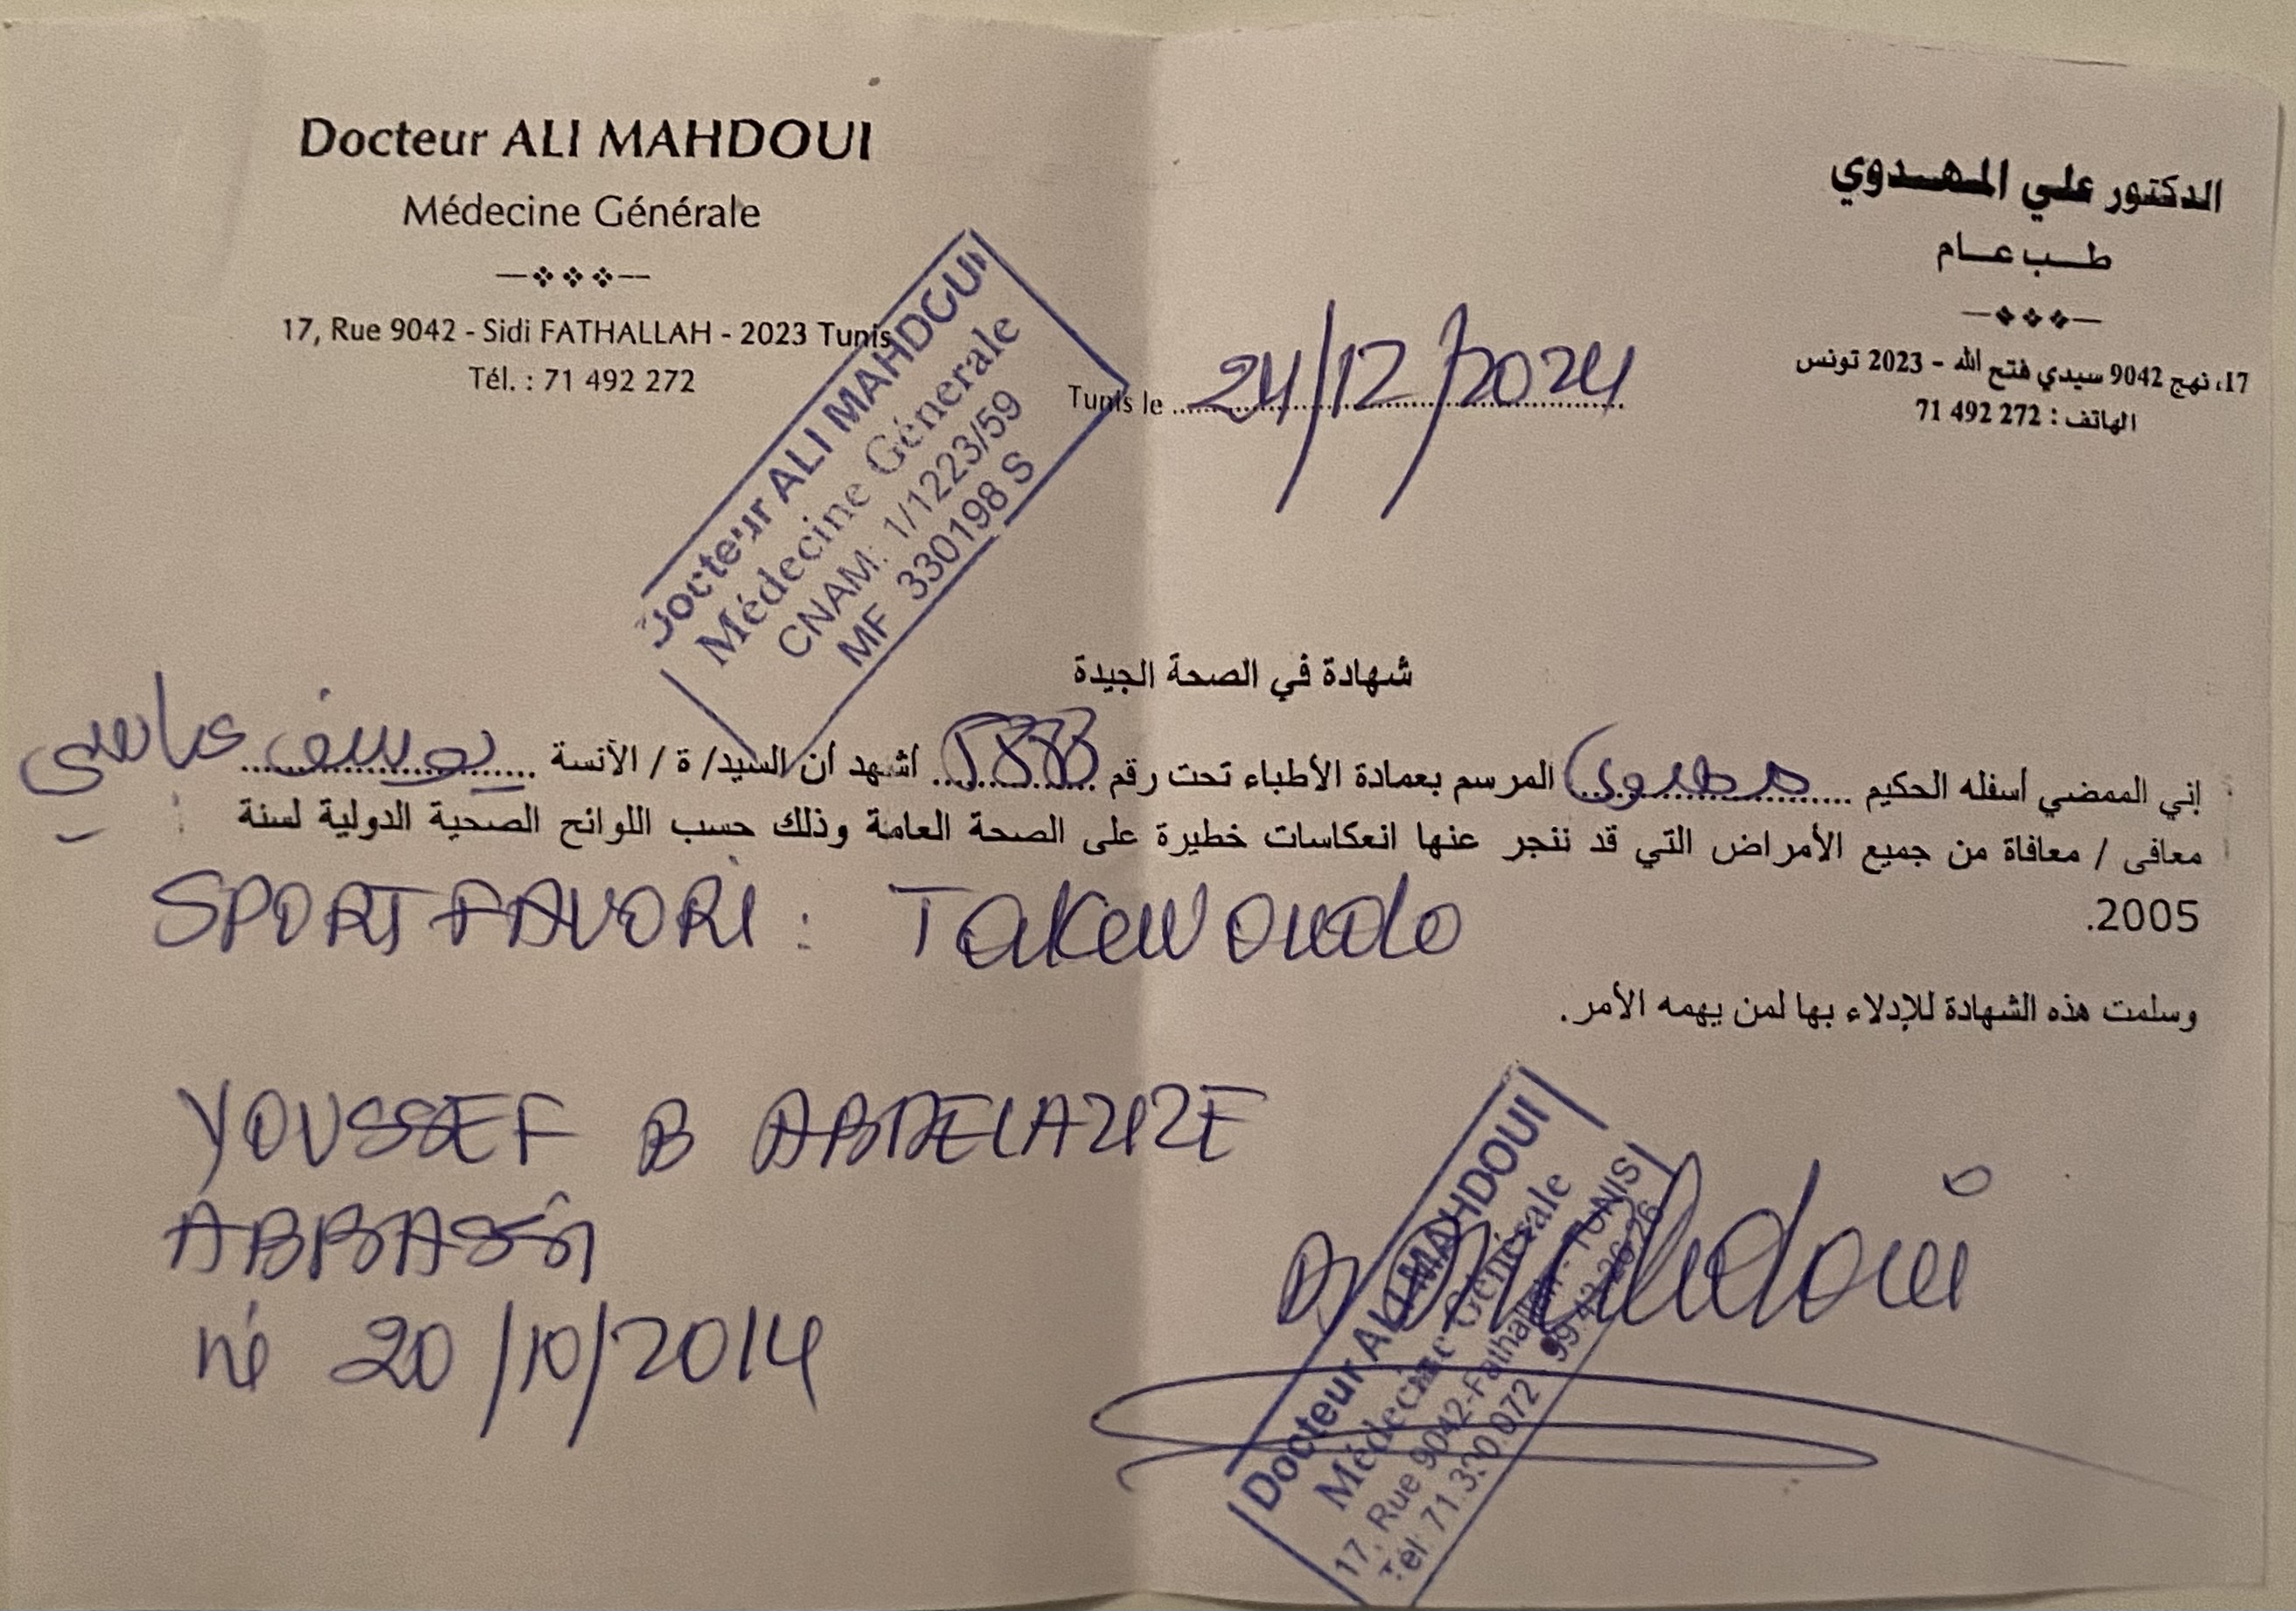 Docteur ALI MAHDOUI
Médecine Générale
17, Rue 9042 - Sidi FATHALLAH - 2023 Tunis
Tél. : 71 492 272
الدكتور علي المهدوي
طب عام
17، نهج 9042 سيدي فتح الله - 2023 تونس
الهاتف : 272 492 71
Docteur ALI MAHDOUI
Médecine Générale
CNAM: 1/1223/59
MF 330198 S
Tunis le 24/12/2024
شهادة في الصحة الجيدة
إني الممضي أسفله الحكيم المرسم بعمادة الأطباء تحت رقم أشهد أن السيد/ ة / الأنسة يوسف عباسي
معافى / معافاة من جميع الأمراض التي قد ننجر عنها انعكاسات خطيرة على الصحة العامة وذلك حسب اللوائح الصحية الدولية لسنة
2005.
SPORT FAVORI : Takewoudo
وسلمت هذه الشهادة للإدلاء بها لمن يهمه الأمر.
YOUSSEF B ABDELAZIZE
ABBASSI
né 20/10/2014
Dr Mahdoui
Docteur ALI MAHDOUI
Médecine Générale
17, Rue 9042-Fathallah - TUNIS
Tél: 71.390.072 99.42.26.26